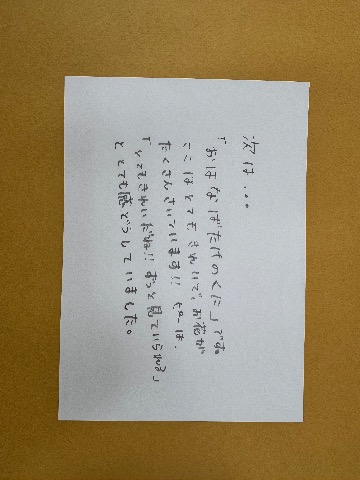 次は...
「おはなばたけのくに」です。
ここはとてもきれいで、お花が
たくさんさいています!! は、
「とてもきれいだね!! ずっと見ていられる」
ととても感どうしていました。